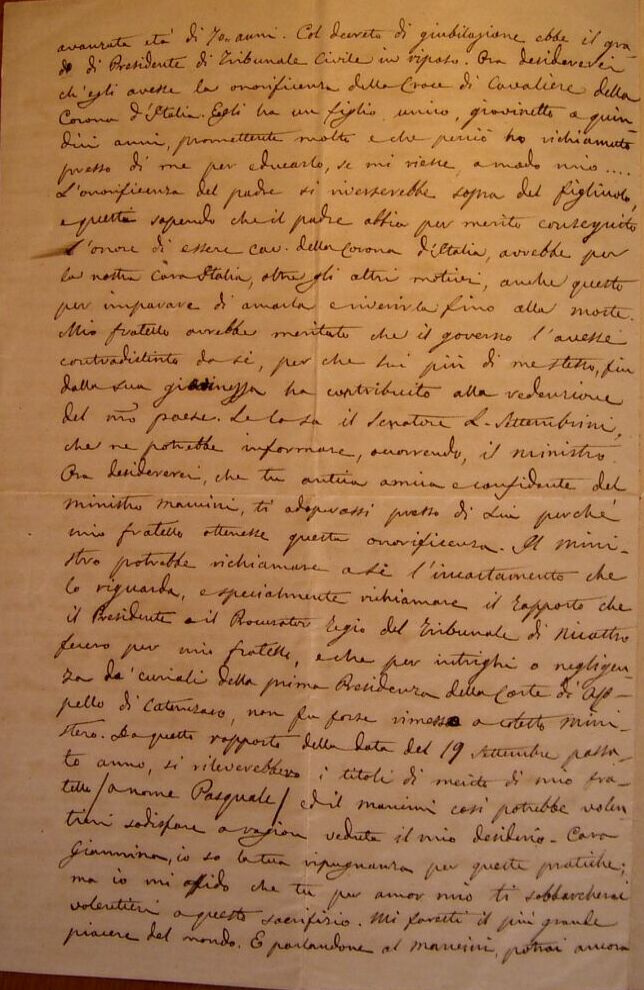 avanzata età di 70 anni. Col decreto di giubilazione ebbe il gra-
do di Presidente di Tribunale Civile in riposo. Ora desidererei
ch'egli avesse la onorificenza della Croce di Cavaliere della
Corona d'Italia. Egli ha un figlio unico, giovinetto a quin-
dici anni, promettente molto e che perciò ho richiamato
presso di me per educarlo, se mi riesce, a modo mio ....
L'onorificenza del padre si riverserebbe sopra del figliuolo,
e questi sapendo che il padre abbia per merito conseguito
l'onore di essere cav. della Corona d'Italia, avrebbe per
la nostra Cara Italia, oltre gli altri motivi, anche questo
per imparare di amarla e riverirla fino alla morte.
Mio fratello avrebbe meritato che il governo l'avesse
contradistinto da sé, per che lui più di me stesso, fin
dalla sua giovinezza ha contribuito alla redenzione
del nro paese. Lo sa il Senatore L. Settembrini,
che ne potrebbe informare, occorrendo, il ministro.
Ora desidererei, che tu antica amica e confidente del
ministro Mancini, ti adoperassi presso di Lui perché
mio fratello ottenesse questa onorificenza. Il mini-
stro potrebbe richiamare a sé l'incartamento che
lo riguarda, e specialmente richiamare il rapporto che
il Presidente e il Procurator Regio del Tribunale di Nicastro
fecero per mio fratello, e che per intrighi o negligen-
za da' curiali della prima Presidenza della Corte di Ap-
pello di Catanzaro, non fu forse rimesso a cotesto Mini-
stero. Da questo rapporto della data del 19 Settembre passa-
to anno, si rileverebbero i titoli di merito di mio fra-
tello /a nome Pasquale/ ed il Mancini così potrebbe volen-
tieri sodisfare a ragion veduta il mio desiderio. Cara
Giannina, io so la tua ripugnanza per queste pratiche;
ma io mi affido che tu per amor mio ti sobbarcherai
volentieri a questo sacrifizio. Mi faresti il più grande
piacere del mondo. E parlandone al Mancini, potrai ancora